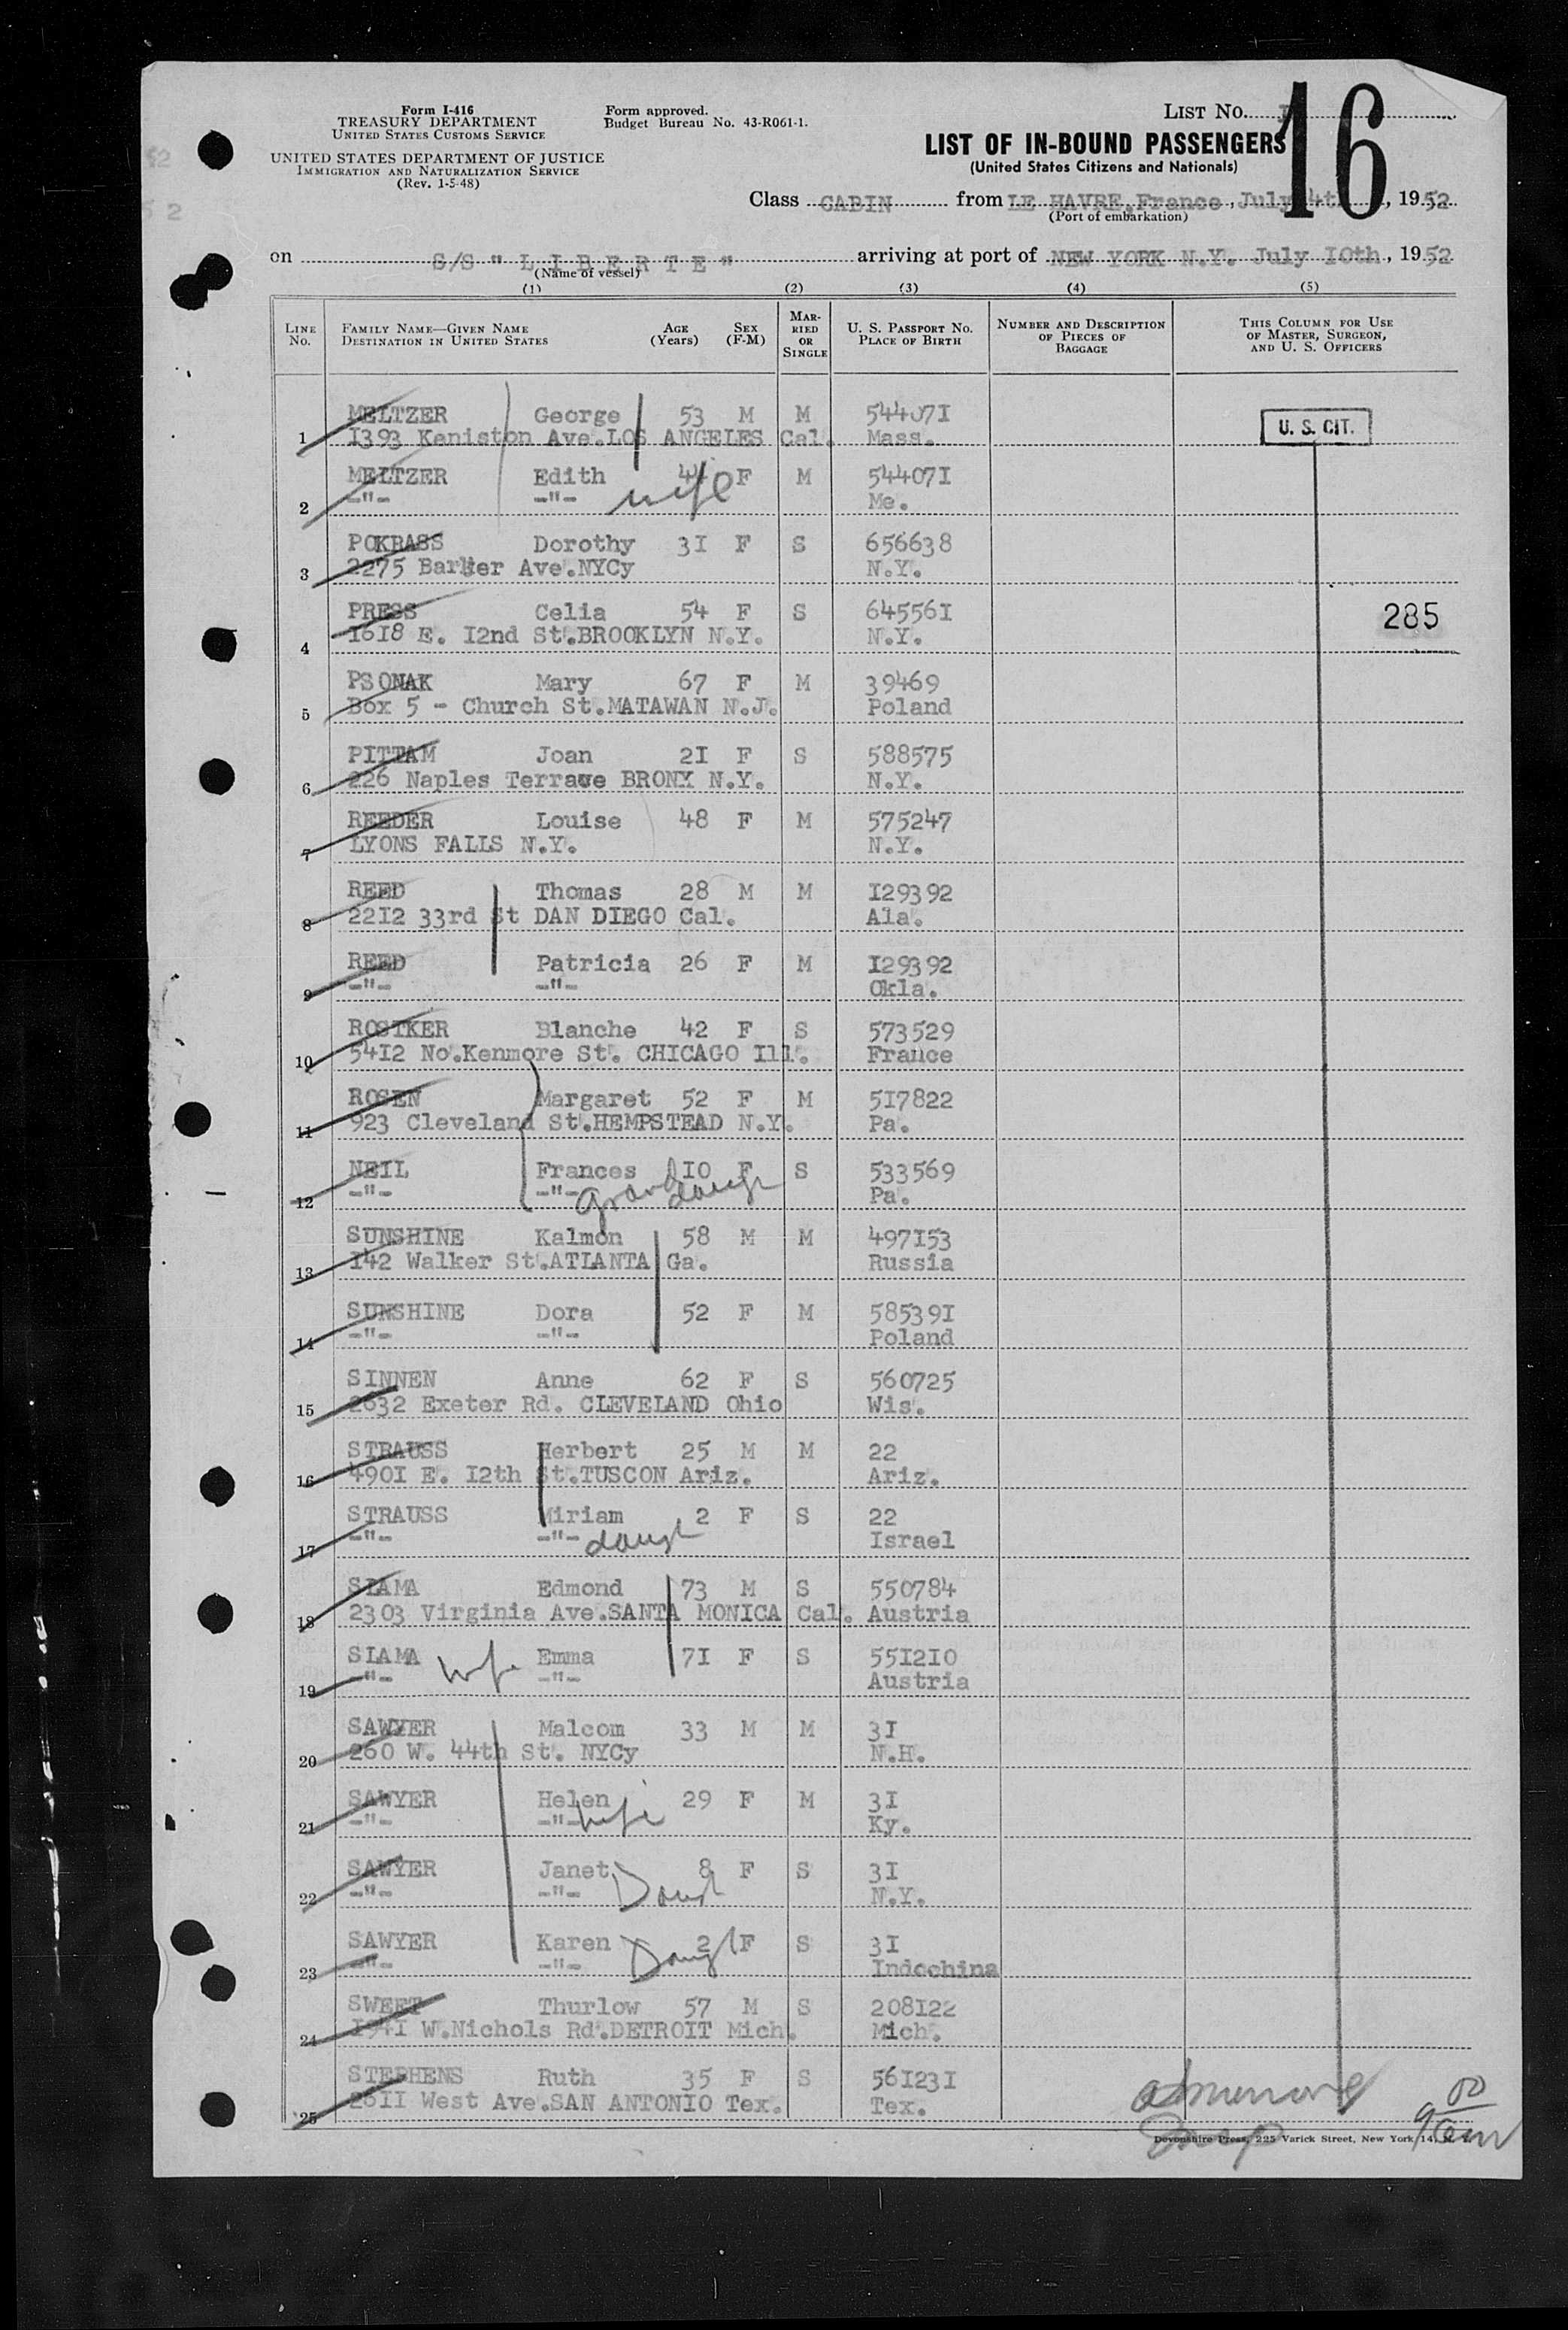 Form I-416
TREASURY DEPARTMENT
UNITED STATES CUSTOMS SERVICE
UNITED STATES DEPARTMENT OF JUSTICE
IMMIGRATION AND NATURALIZATION SERVICE
(Rev. 1-5-48)
Form approved.
Budget Bureau No. 43-R061-1.
LIST No.
16
LIST OF IN-BOUND PASSENGERS
(United States Citizens and Nationals)
Class CABIN from LE HAVRE.France, July 4th, 1952
(Port of embarkation)
on S/S " L I B E R T E " arriving at port of NEW YORK N.Y. July 10th, 1952
(Name of vessel)
(1) (2) (3) (4) (5)
LINE No. FAMILY NAME—GIVEN NAME DESTINATION IN UNITED STATES AGE (Years) SEX (F-M) MARRIED OR SINGLE U. S. PASSPORT No. PLACE OF BIRTH NUMBER AND DESCRIPTION OF PIECES OF BAGGAGE THIS COLUMN FOR USE OF MASTER, SURGEON, AND U. S. OFFICERS
MELTZER George 53 M M 544071
1 1393 Keniston Ave.LOS ANGELES Cal. Mass. U. S. CIT.
MELTZER Edith 44 F M 544071
2 -"- -"- wife Me.
POKRASS Dorothy 31 F S 656638
3 2275 Barker Ave.NYCy N.Y.
PRESS Celia 54 F S 645561 285
4 1618 E. 12nd St.BROOKLYN N.Y. N.Y.
PSONAK Mary 67 F M 39469
5 Box 5 - Church St.MATAWAN N.J. Poland
PITTAM Joan 21 F S 588575
6 226 Naples Terrawe BRONX N.Y. N.Y.
REEDER Louise 48 F M 575247
7 LYONS FALLS N.Y. N.Y.
REED Thomas 28 M M 129392
8 2212 33rd St DAN DIEGO Cal. Ala.
REED Patricia 26 F M 129392
9 -"- -"- Okla.
ROSIKER Blanche 42 F S 573529
10 5412 No.Kenmore St. CHICAGO Ill. France
ROSEN Margaret 52 F M 517822
11 923 Cleveland St.HEMPSTEAD N.Y. Pa.
NEIL Frances 10 F S 533569
12 -"- -"- granddaugh Pa.
SUNSHINE Kalmon 58 M M 497153
13 142 Walker St.ATLANTA Ga. Russia
SUNSHINE Dora 52 F M 585391
14 -"- -"- Poland
SINNEN Anne 62 F S 560725
15 2632 Exeter Rd. CLEVELAND Ohio Wis.
STRAUSS Herbert 25 M M 22
16 4901 E. 12th St.TUSCON Ariz. Ariz.
STRAUSS Miriam 2 F S 22
17 -"- -"- daugh Israel
SLAMA Edmond 73 M S 550784
18 2303 Virginia Ave.SANTA MONICA Cal. Austria
SLAMA wife Emma 71 F S 551210
19 -"- -"- Austria
SAWYER Malcom 33 M M 31
20 260 W. 44th St. NYCy N.H.
SAWYER Helen 29 F M 31
21 -"- -"- wife Ky.
SAWYER Janet 8 F S 31
22 -"- -"- Daugh N.Y.
SAWYER Karen 2 F S 31
23 -"- -"- Daugh Indochina
SWEET Thurlow 57 M S 208122
24 1941 W.Nichols Rd.DETROIT Mich. Mich.
STEPHENS Ruth 35 F S 561231
25 2611 West Ave.SAN ANTONIO Tex. Tex.
Insp
Devonshire Press, 225 Varick Street, New York 14,